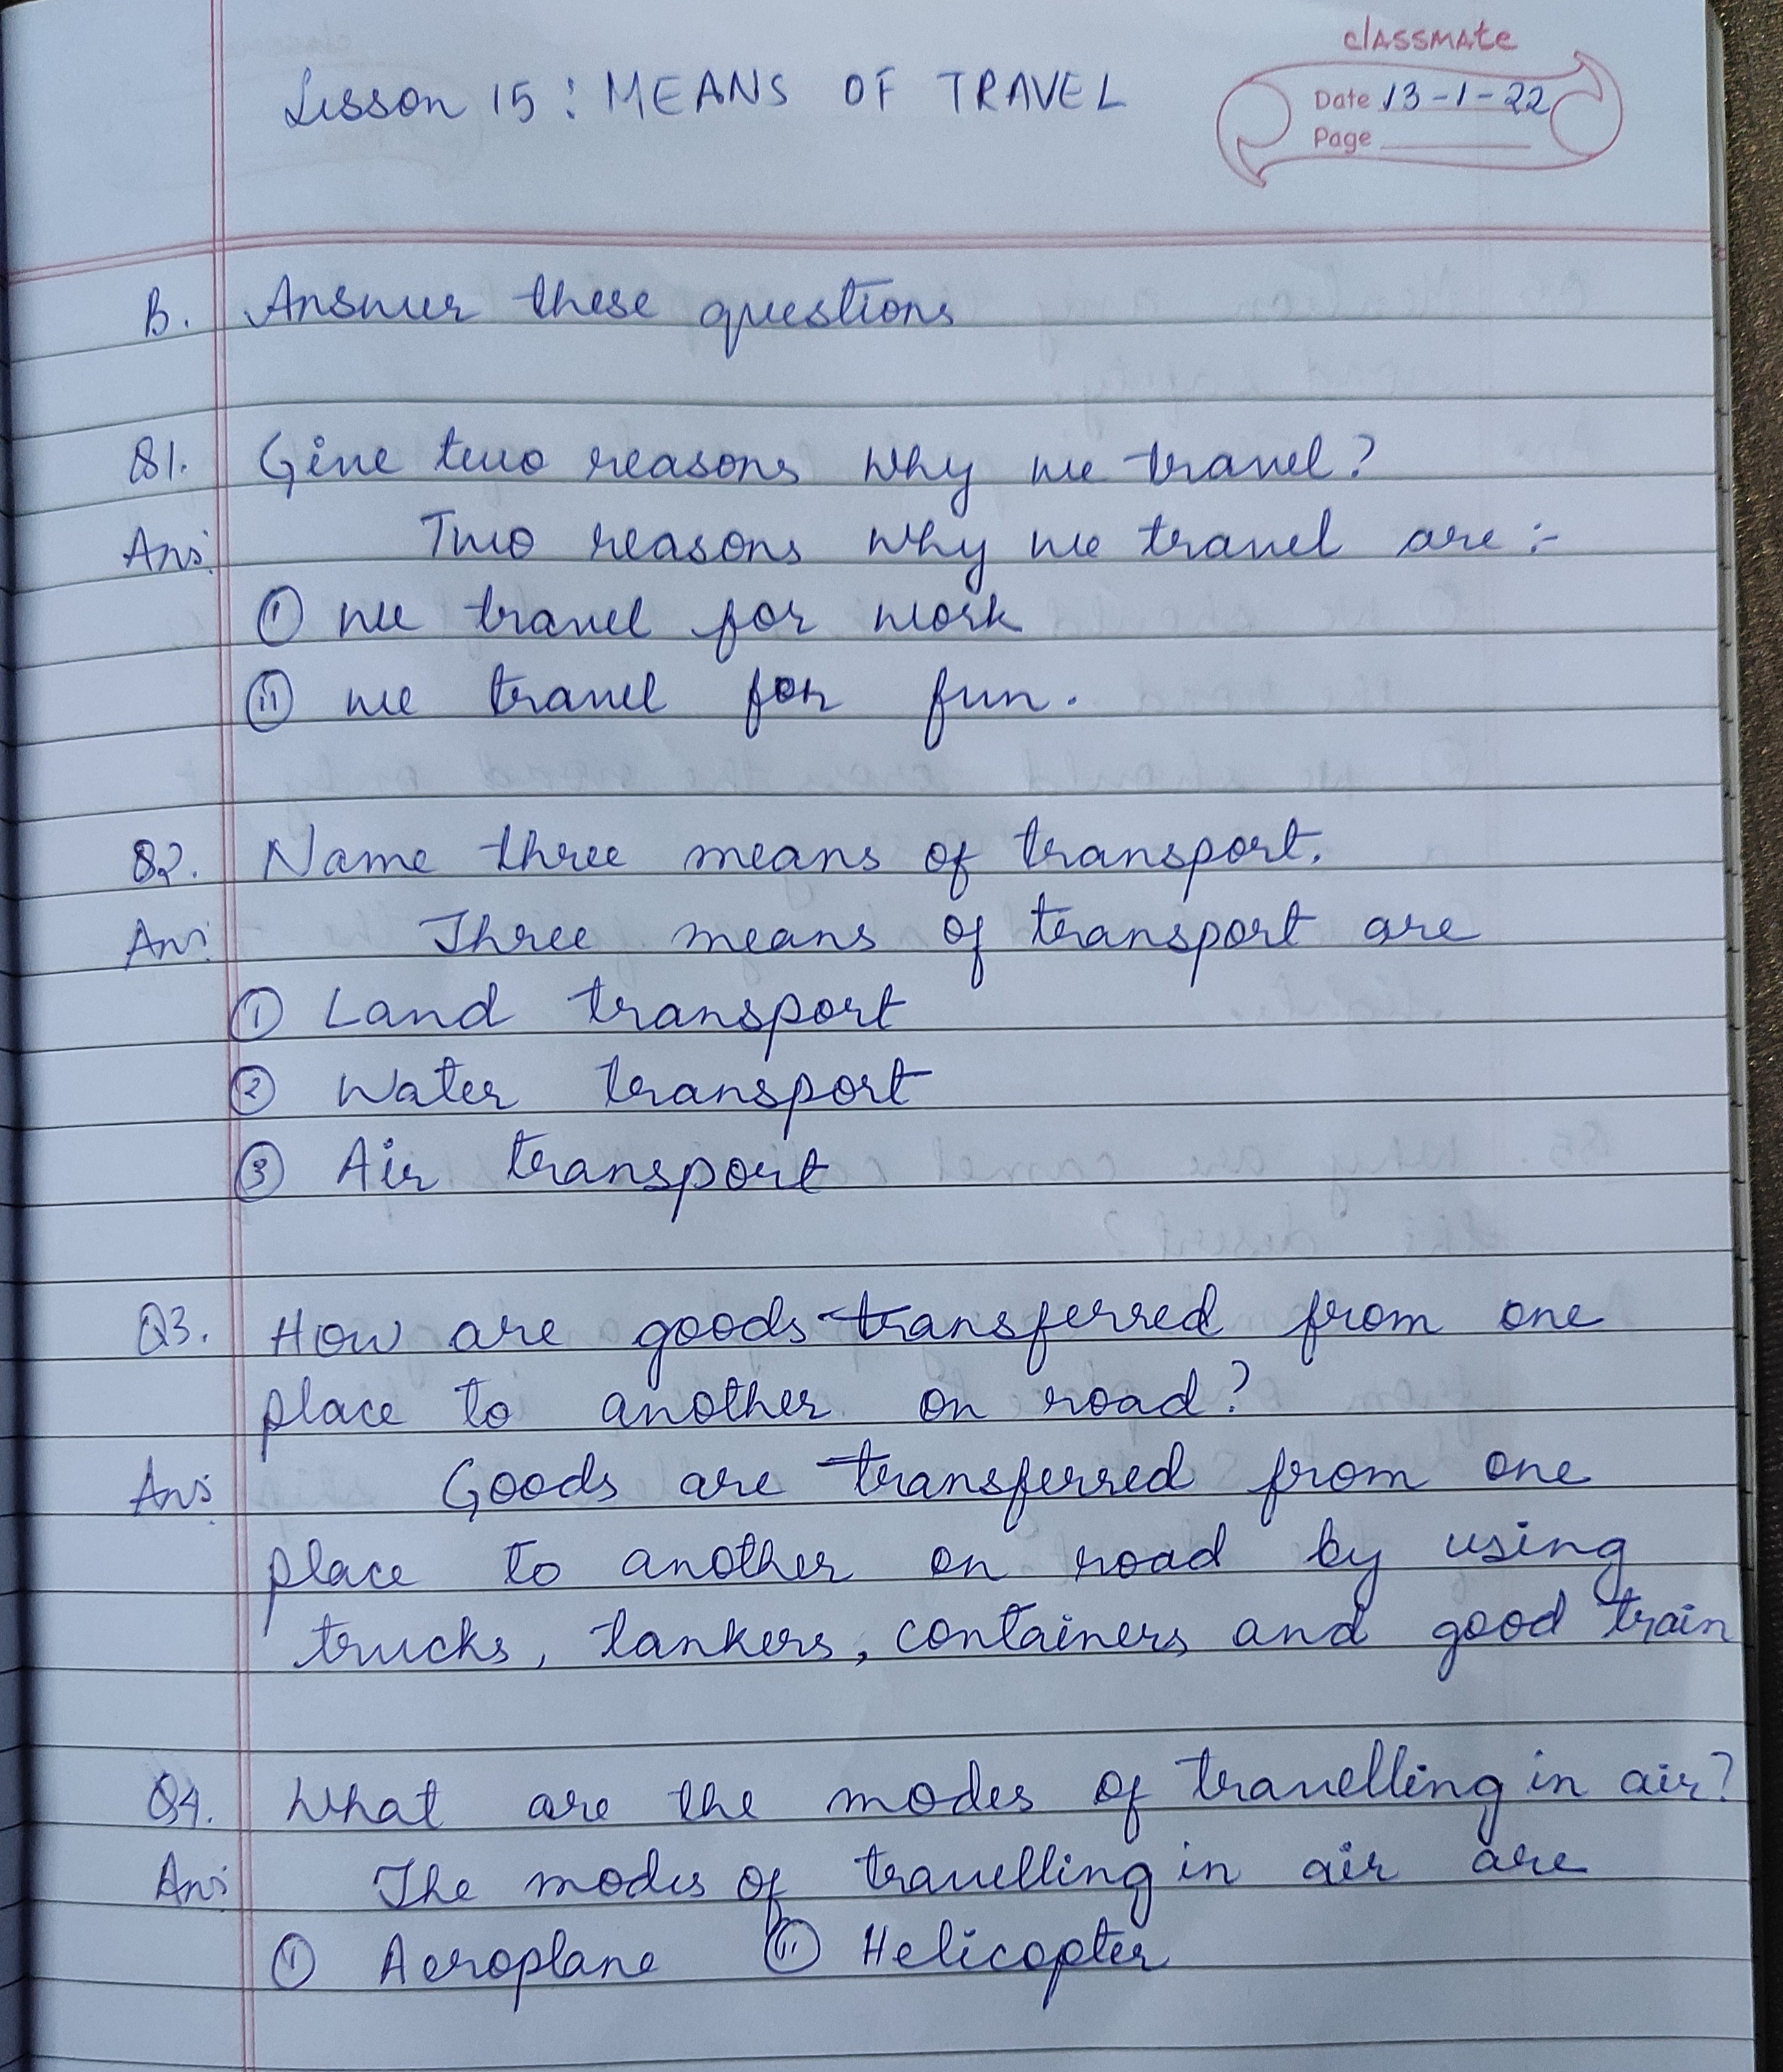 classmate
Date 13-1-22
Page
Lesson 15 : MEANS OF TRAVEL
B. Answer these questions
Q1. Give two reasons why we travel?
Ans: Two reasons why we travel are :-
(i) we travel for work
(ii) we travel for fun.
Q2. Name three means of transport.
Ans: Three means of transport are
(1) Land transport
(2) Water transport
(3) Air transport
Q3. How are goods transferred from one
place to another on road?
Ans: Goods are transferred from one
place to another on road by using
trucks, tankers, containers and good train
Q4. What are the modes of travelling in air?
Ans: The modes of travelling in air are
(i) Aeroplane (ii) Helicopter